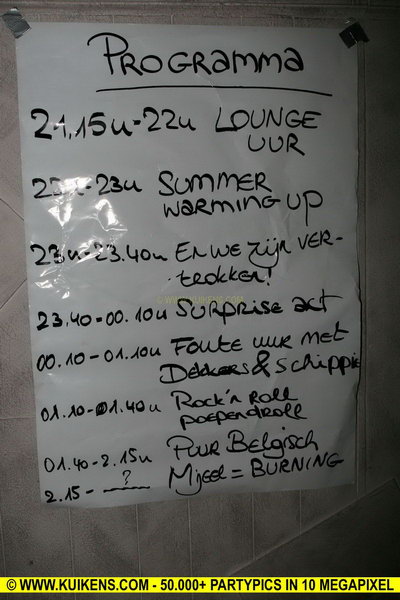 PROGRAMMA
21,15u-22u LOUNGE
UUR
22u-23u SUMMER
WARMING UP
23u-23.40u EN WE zijn VER-
trokken!
© WWW.KUIKENS.COM
23.40-00.10u SURPRISE act
00.10-01.10u Foute uur met
Dekkers & Schippie
01.10-01.40u Rock'n Roll
poependroll
01.40-2.15u Puur Belgisch
2.15- ? Mijeel = BURNING
© WWW.KUIKENS.COM - 50.000+ PARTYPICS IN 10 MEGAPIXEL